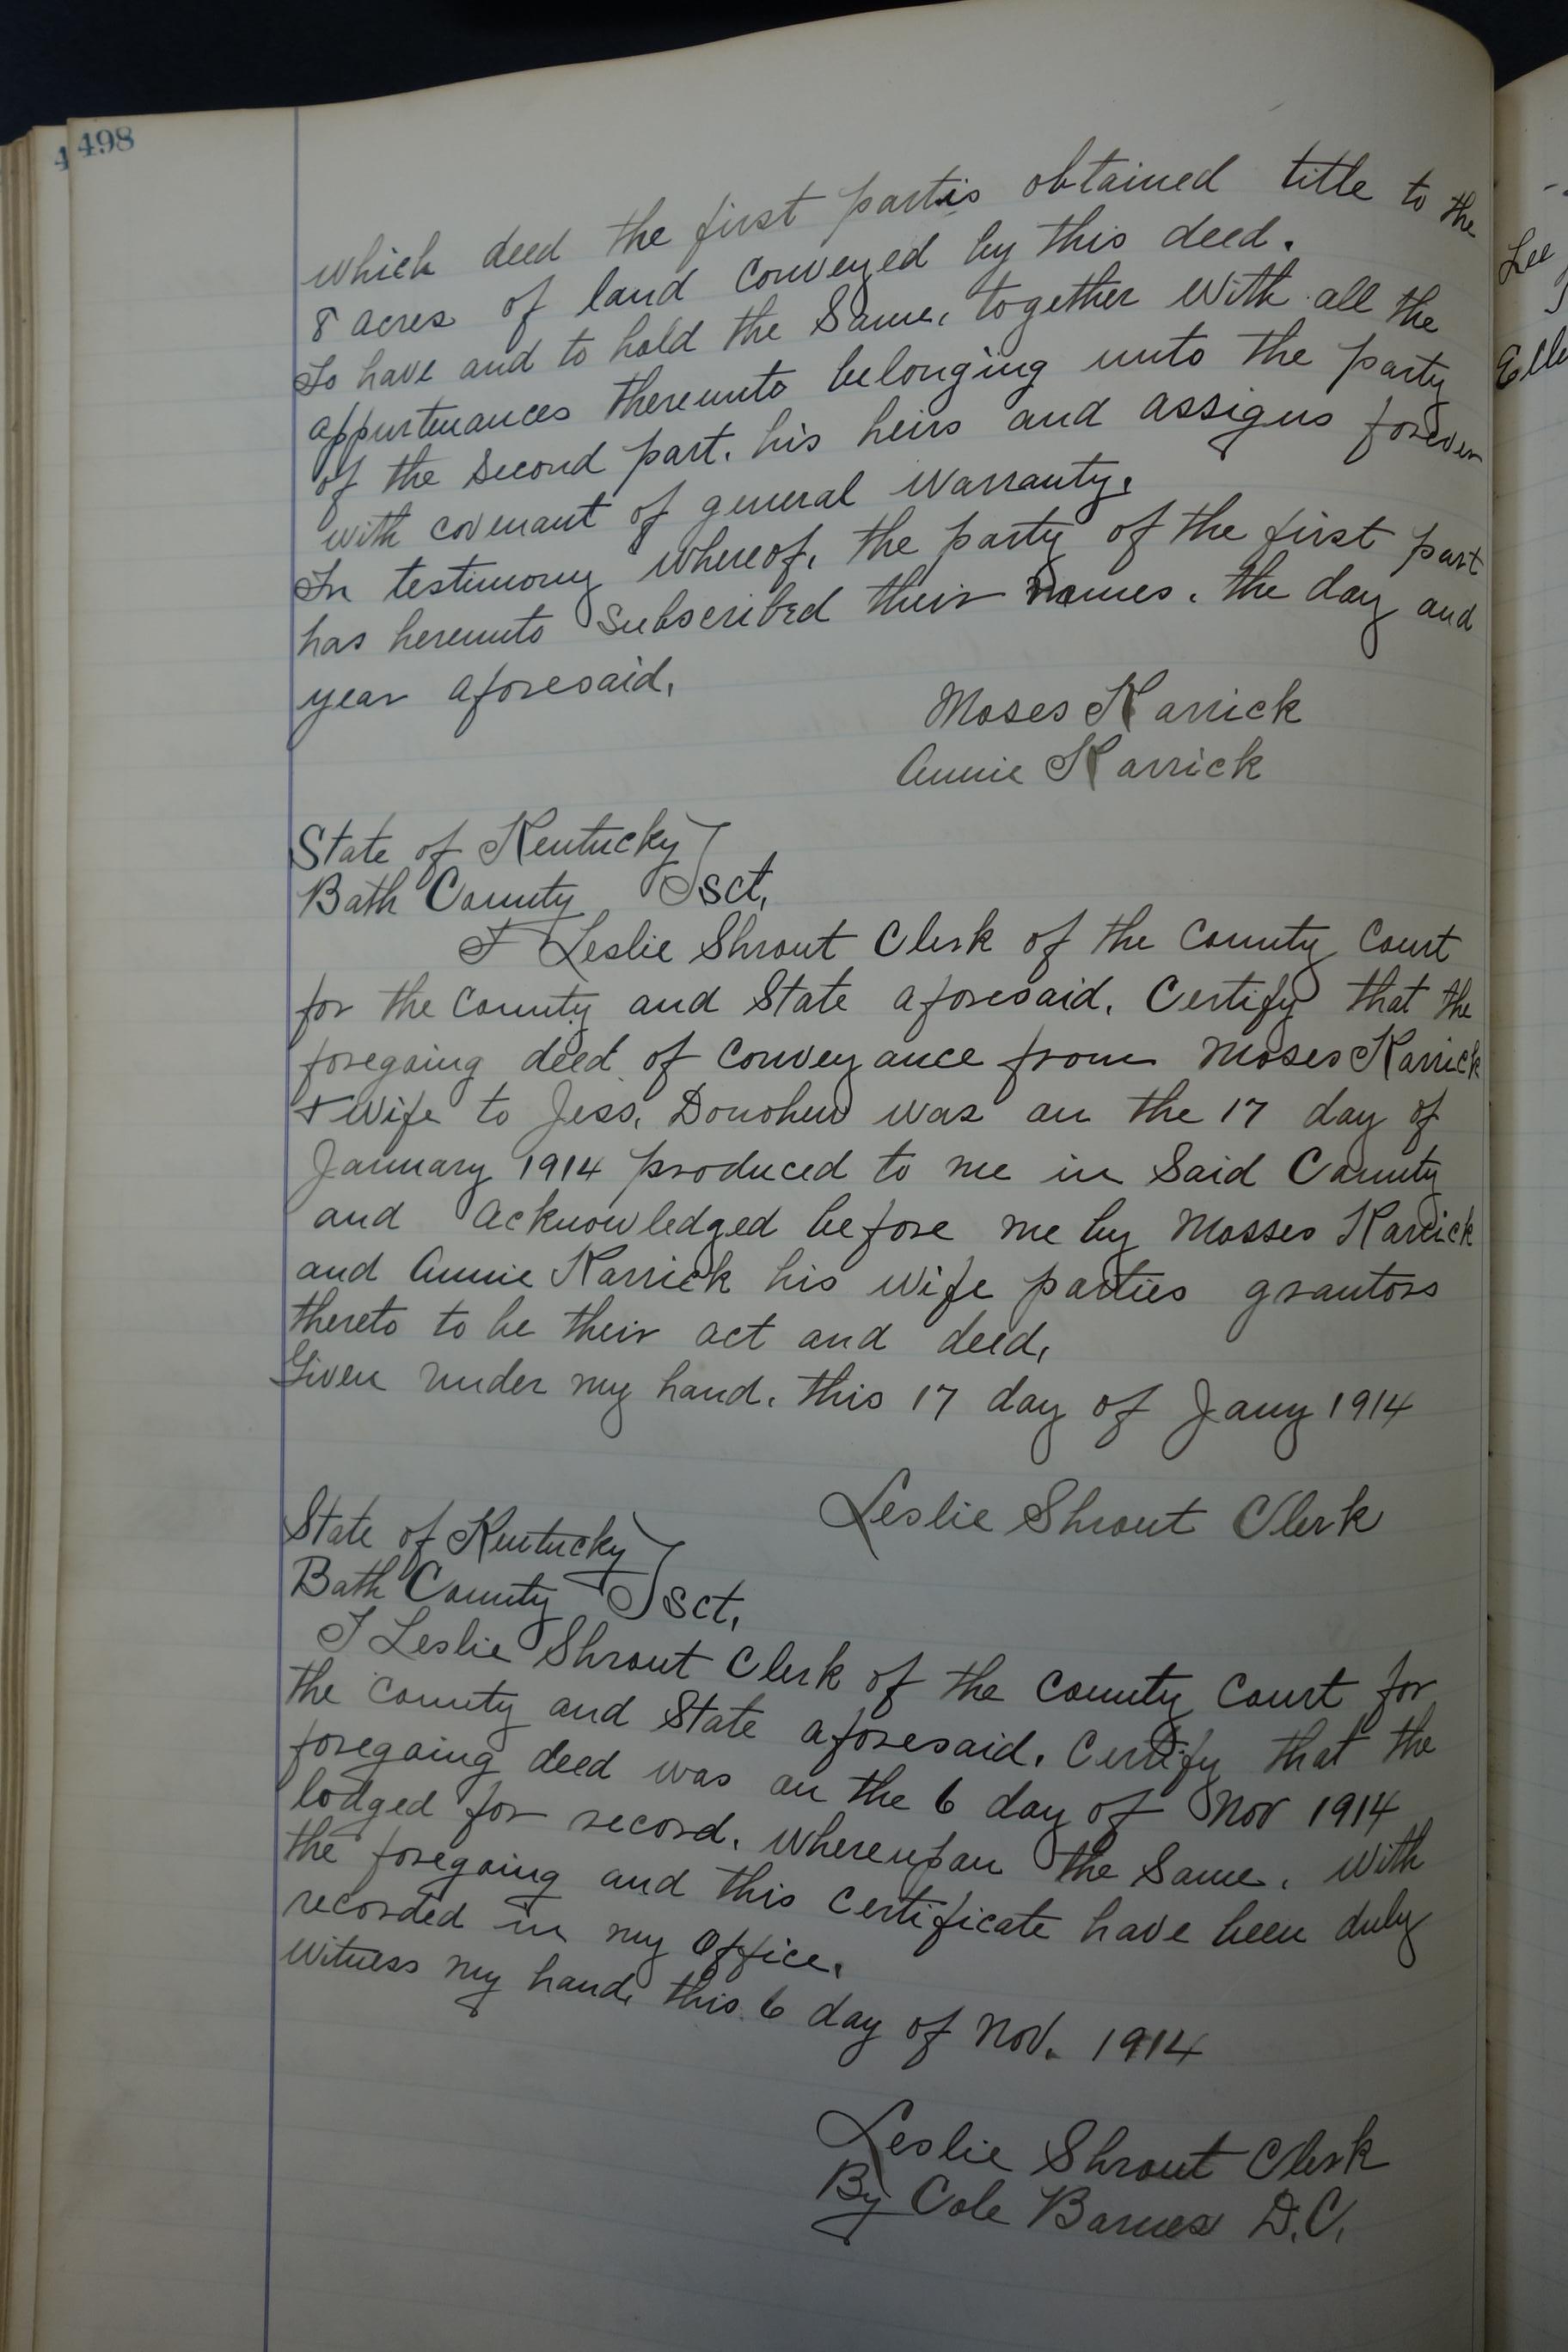 498
4
which deed the first partis obtained title to the
8 acres of land conveyed by this deed.
To have and to hold the Same, together With all the
appurtenances thereunto belonging unto the party
of the Second part. his heirs and assigns forever
with covenant of general Warranty.
In testimony whereof, the party of the first part
has hereunto Subscribed their names. the day and
year aforesaid,
Moses Karrick
Annie Karrick
State of Kentucky
Bath County } sct,
I Leslie Shrout Clerk of the County Court
for the County and State aforesaid. Certify that the
foregoing deed of Conveyance from Moses Karrick
+ Wife to Jess. Donohew was on the 17 day of
January 1914 produced to me in Said County
and acknowledged before me by Mosses Karrick
and Annie Karrick his Wife parties grantors
thereto to be their act and deed,
Given under my hand. this 17 day of Jany 1914
Leslie Shrout Clerk
State of Kentucky
Bath County } sct,
I Leslie Shrout Clerk of the County Court for
the County and State aforesaid. Certify that the
foregoing deed was on the 6 day of Nov 1914
lodged for record. Whereupon the Same, With
the foregoing and this Certificate have been duly
recorded in my office.
Witness my hand, this 6 day of Nov. 1914
Leslie Shrout Clerk
By Cole Barnes D.C.
Lee